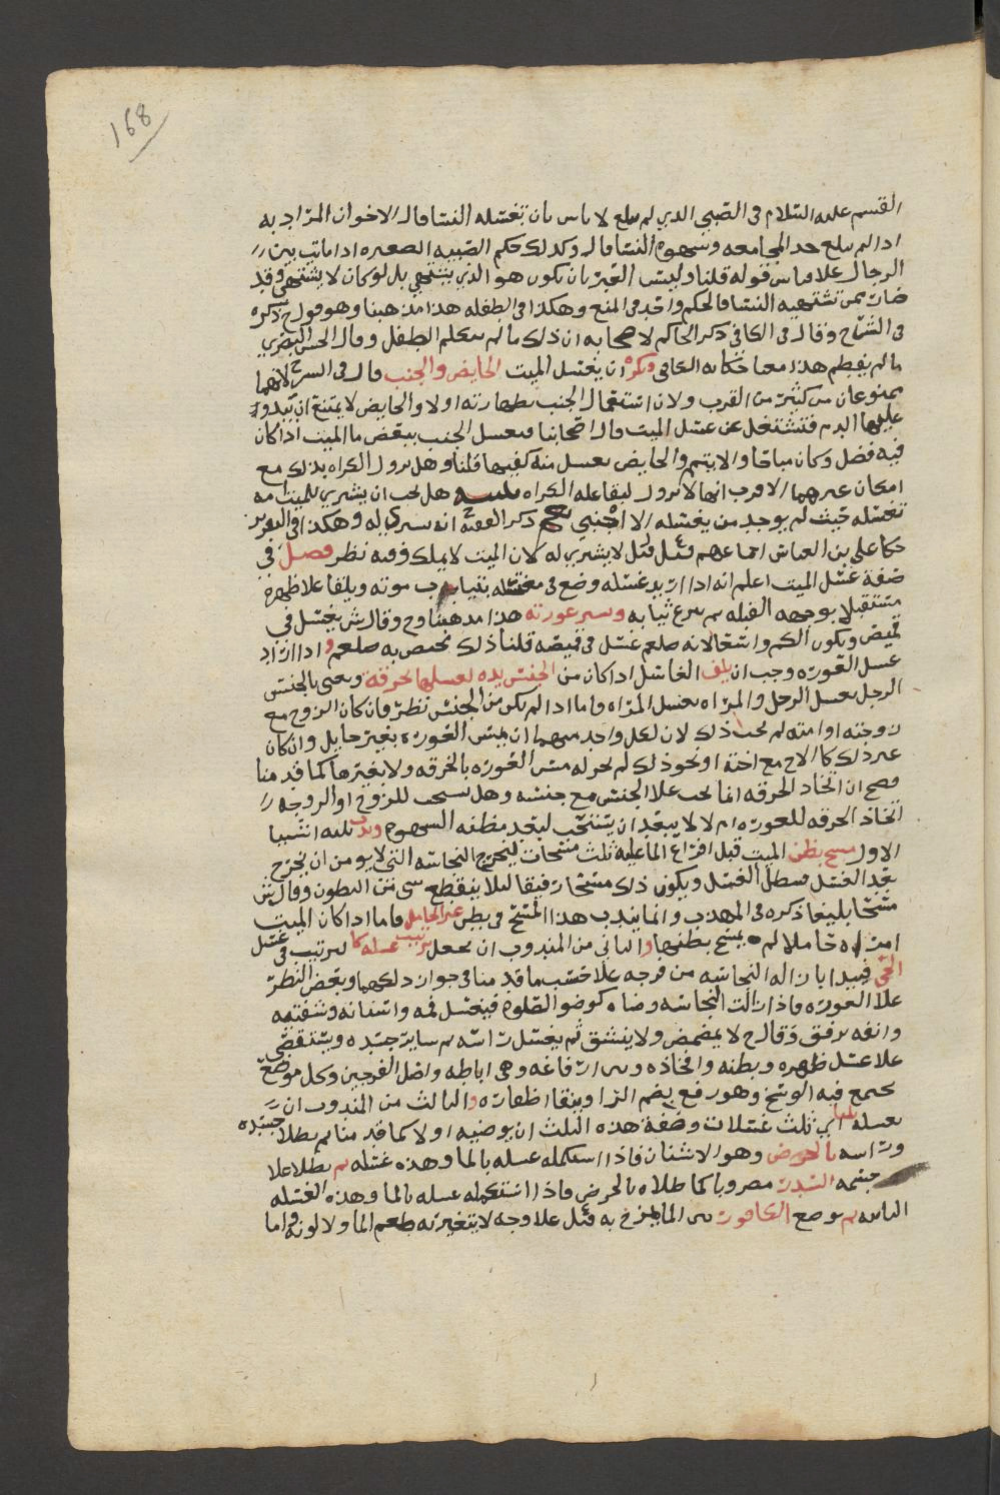 168
القسم عليه السلام في الصبي الذي لم يبلغ لا باس بان تغسله النسا قال الاخوان المراد به
اذا لم يبلغ حد المجامعه وشهوه النسا قال وكذلك حكم الصبيه الصغيره اذا ماتت بين
الرجال علا قياس قوله قلنا وليس العبره بان يكون هو الذي يشتهي بل لو كان لا يشتهي وقد
صار ممن تشتهيه النسا فالحكم واحد في المنع وهكذا في الطفله هذا مذهبنا وهو قول ح ذكره
في الشرح وقال في الكافي ذكر الحاكم لاصحابه ان ذلك ما لم يتكلم الطفل وقال الحسن البصري
ما لم يفطم هذا معنا حكايه الكافي وكره ان يغسل الميت الحايض والجنب قال في الشرح لانهما
ممنوعان من كثير من القرب ولان استعمال الجنب لطهارته اولا والحايض لا يمتنع ان يبدو
عليها الدم فتشتغل عن غسل الميت قال اصحابنا ويغسل الجنب ببعض ما الميت اذا كان
فيه فضل وكان مباحا والا يتيمم والحايض يغسل منه كفيها قلنا وهل تزول الكراه بذلك مع
امكان غيرهما الاقرب انها لا تزول لبقا عله الكراه هل يجب ان يشترى للميت امه
تغسله حيث لم يوجد من يغسله الا اجنبي ذكر الفقيه ح انه يشترى له وهكذا في التقرير
حكا علي بن العباس اجماعهم قيل لا يشترى له لان الميت لا يملك وفيه نظر فصل في
صفة غسل الميت اعلم انه اذا اريد غسله وضع في مغتسله بثيابه موته ويلقا علا ظهره
مستقبلا بوجهه القبله ثم ينزع ثيابه وستر عورته هذا مذهبنا وح وقال ش يغسل في
قميص ويكون الكم واسعا لانه صلعم غسل في قميصه قلنا ذلك مختص به صلعم واذا اراد
غسل العوره وجب ان يلف الغاسل اذا كان من الجنس يده لغسلها بخرقه ونعني بالجنس
الرجل يغسل الرجل والمراه يغسل المراه واما اذا لم يكن من الجنس نظر فان كان الزوج مع
زوجته او امته لم يجب ذلك لان لكل واحد منهما ان يمس العوره بغير حايل وان كان
غير ذلك كالاخ مع اخته او نحو ذلك لم يجز له مس العوره بالخرقه ولا بغيرها كما قد منا
فصح ان اتخاذ الخرقه انما يجب علا الجنس مع جنسه وهل يستحب للزوج او الزوجه
اتخاذ الخرقه للعوره ام لا لا يبعد ان يستحب لبعد مظنه الشهوه وندب ثلثه اشيا
الاول مسح بطن الميت قبل افراغ الما عليه ثلث مسحات ليخرج النجاسه التي لا يومن ان تخرج
بعد الغسل فيبطل الغسل ويكون ذلك مسحا رفيقا ليلا ينقطع شي من البطون وقال ش
مسحا بليغا ذكره في المهذب وانما يندب هذا المسح في بطن غير الحامل فاما اذا كان الميت
امراه حاملا لم يمسح بطنها والثاني من المندوب ان يجعل ترتيب غسله كا لترتيب في غسل
الحي فيبدا بازاله النجاسه من فرجه علا حسب ما قد منا في جواز دلكهما وبعض النظر
علا العوره فاذا زالت النجاسه وضاه كوضو الصلوه فيغسل فمه واسنانه وشفتيه
وانفه برفق وقال ح لا يمضمض ولا ينشق ثم يغسل راسه ثم ساير جسده ويستقصي
علا غسل ظهره وبطنه وافخاذه وبين ارفاغه وهي اباطه واصل الفرجين وكل موضع
يجمع فيه الوسخ وهو رفغ بضم الرا وينقا اظفاره والثالث من المندوب ان
يغسله ثلثا اي ثلث غسلات وصفة هذه الثلث ان يوضيه اولا كما قد منا ثم يطلا جسده
وراسه بالحرض وهو الاشنان فاذا استكمله غسله بالما وهذه غسله ثم يطلا علا
جسمه السدر مضروبا كما طلاه بالحرض فاذا استكمله غسله بالما وهذه الغسله
الثانيه ثم يوضع الكافور في الما يمزج به قيل علا وجه لا يتغير به طعم الما ولا لونه واما